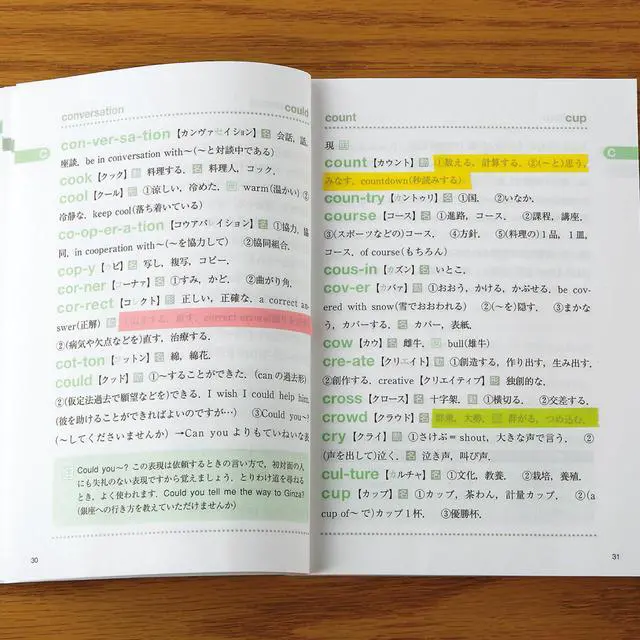 conversation
could
C
con-ver-sa-tion【カンヴァセイション】名 会話, 話,
座談. be in conversation with～(～と対談中である)
cook【クック】動 料理する. 名 料理人, コック.
cool【クール】形 ①涼しい, 冷めた. 反 warm(温かい) ②
冷静な. keep cool(落ち着いている)
co-op-er-a-tion【コウアパレイション】名 ①協力, 協
同. in cooperation with～(～を協力して) ②協同組合.
cop-y【カピ】名 写し, 複写, コピー.
cor-ner【コーナァ】名 ①すみ, かど. ②曲がり角.
cor-rect【コレクト】形 正しい, 正確な. a correct an-
swer(正解)
②(病気や欠点などを)直す, 治療する.
cot-ton【コットン】名 綿, 綿花.
could【クッド】助 ①～することができた. (canの過去形)
②(仮定法過去で願望などを)できる. I wish I could help him.
(彼を助けることができればよいのですが…) ③Could you～?
(～してくださいませんか) →Can you よりもていねいな表
Could you～? この表現は依頼するときの言い方で, 初対面の人
にも失礼のない表現ですから覚えましょう. とりわけ道を尋ねる
とき, よく使われます. Could you tell me the way to Ginza?
(銀座への行き方を教えていただけませんか)
30
count
cup
C
現
count【カウント】動 ①数える, 計算する. ②(～と)思う,
みなす. countdown(秒読みする)
coun-try【カントゥリ】名 ①国. ②いなか.
course【コース】名 ①進路, コース. ②課程, 講座.
③(スポーツなどの)コース. ④方針. ⑤(料理の)1品, 1皿,
コース. of course(もちろん)
cous-in【カズン】名 いとこ.
cov-er【カバァ】動 ①おおう, かける, かぶせる. be cov-
ered with snow(雪でおおわれる) ②(～を)隠す. ③まかな
う, カバーする. 名 カバー, 表紙.
cow【カウ】名 雌牛. 反 bull(雄牛)
cre-ate【クリエイト】動 ①創造する, 作り出す, 生み出す.
②創作する. creative【クリエイティブ】形 独創的な.
cross【クロース】名 十字架. 動 ①横切る. ②交差する.
crowd【クラウド】名 群衆, 大勢. 動 群がる, つめ込む.
cry【クライ】動 ①さけぶ＝shout, 大きな声で言う. ②
(声を出して)泣く. 名 泣き声, 叫び声.
cul-ture【カルチャ】名 ①文化, 教養. ②栽培, 養殖.
cup【カップ】名 ①カップ, 茶わん, 計量カップ. ②(a
cup of～で)カップ1杯. ③優勝杯.
31